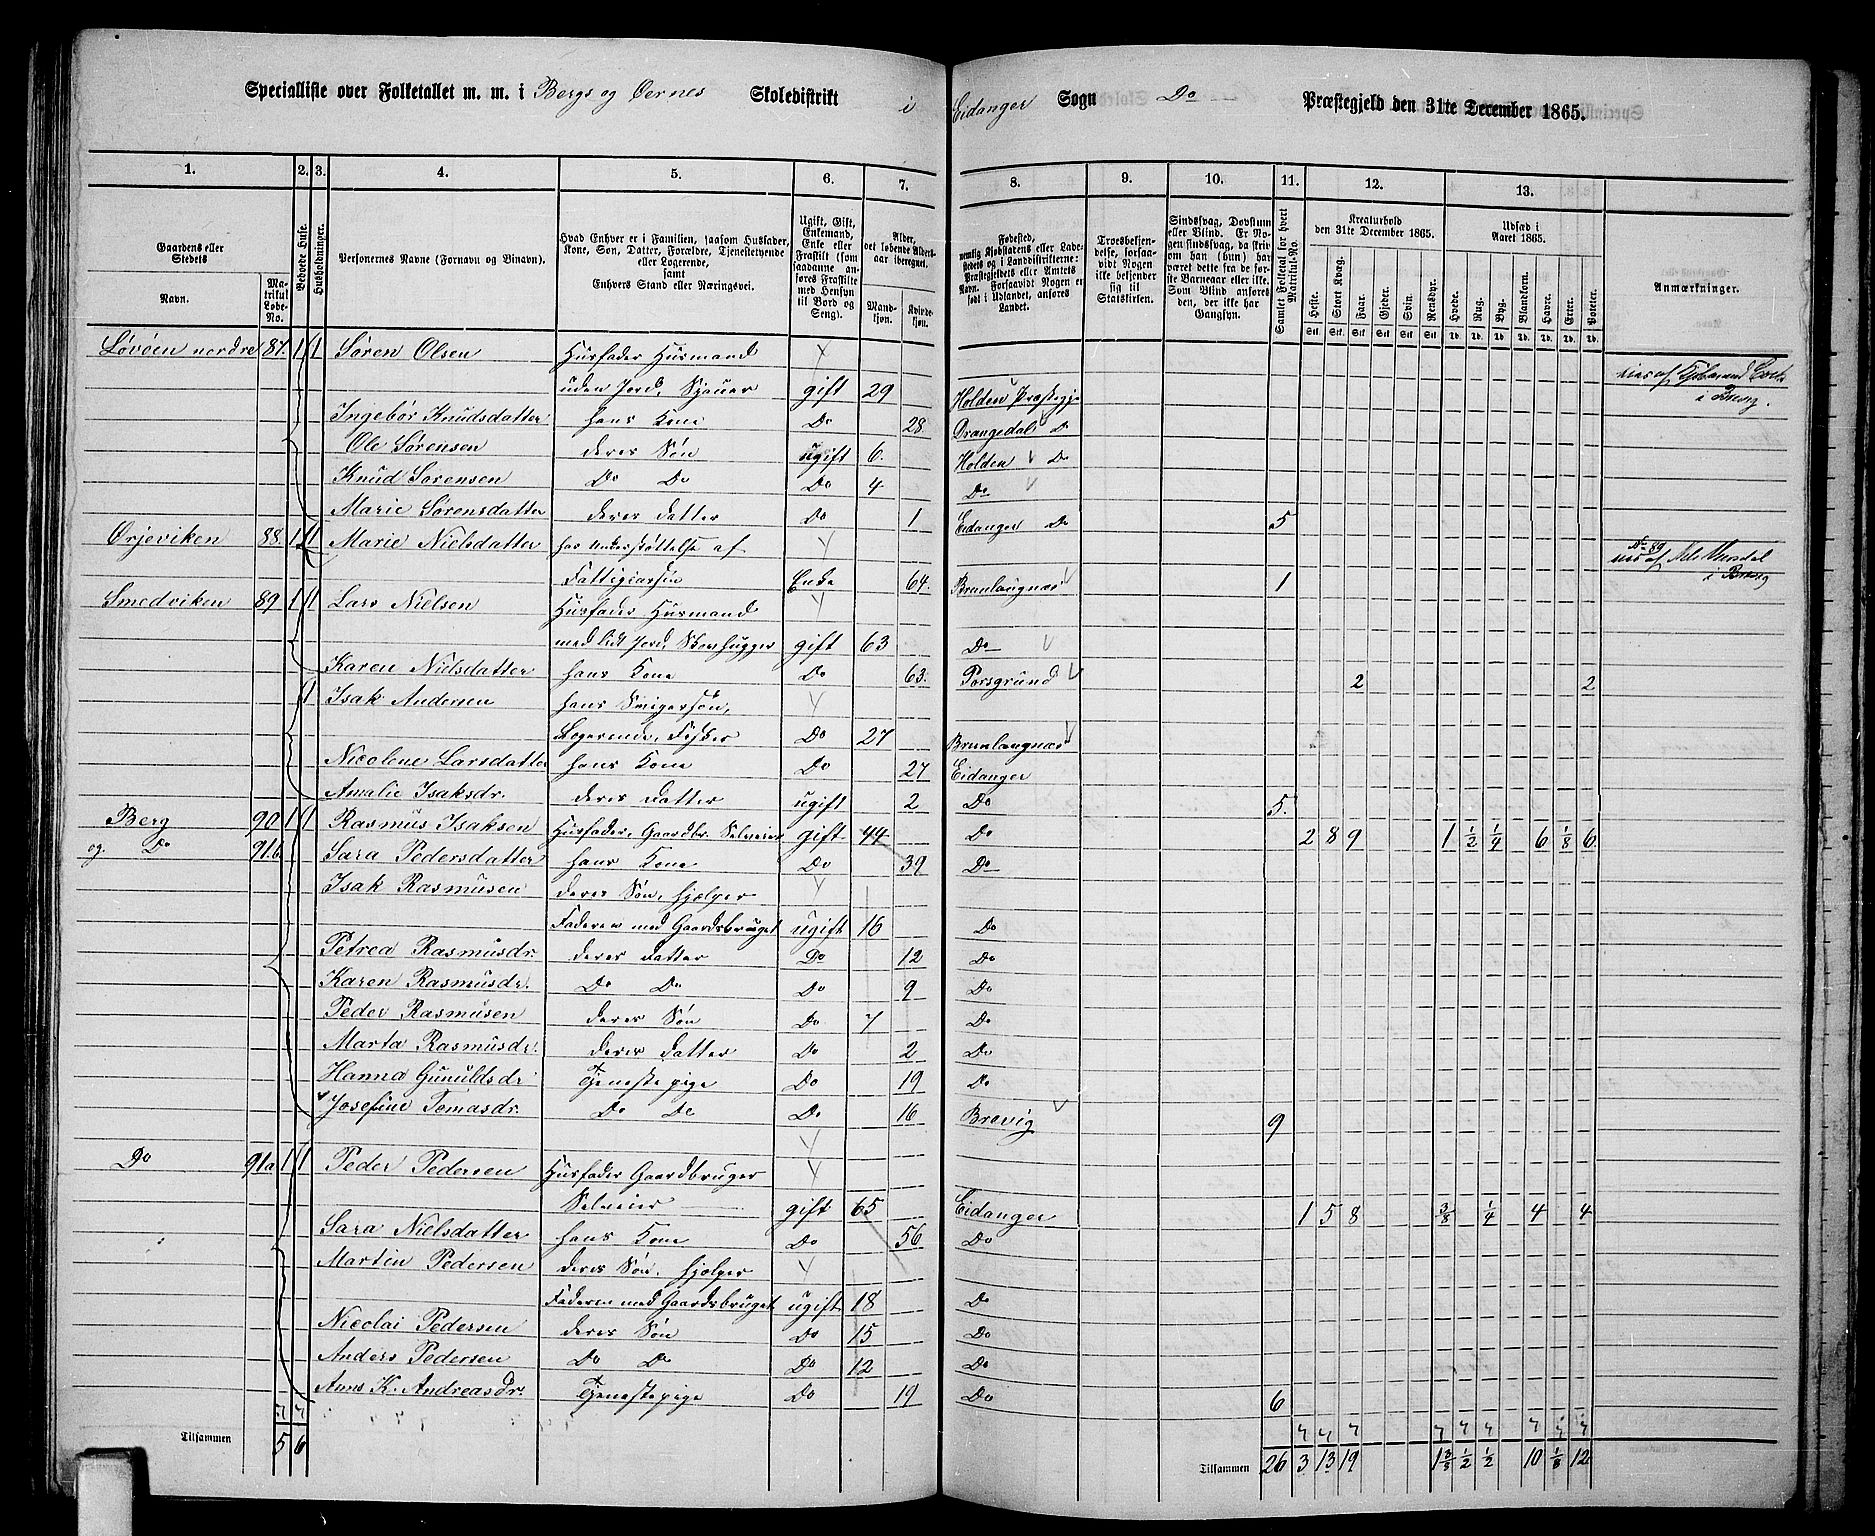 Specialliste over Folketallet m. m. i Bergs og Øernes Skoledistrikt i Eidanger Sogn Do Præstegjeld den 31te December 1865.
1. 2. 3. 4. 5. 6. 7. 8. 9. 10. 11. 12. 13.
Gaardens eller Stedets Navn. Matrikul Løbe-No.
Beboede Huse.
Husholdninger.
Personernes Navne (Fornavn og Binavn).
Hvad Enhver er i Familien, saasom Husfader, Kone, Søn, Datter, Forældre, Tjenestetyende eller Logerende, samt Enhvers Stand eller Næringsvei.
Ugift, Gift, Enkemand, Enke eller Fraskilt (som saadanne anføres Fraskilte med Hensyn til Bord og Seng).
Alder, det løbende Alders-aar iberegnet. Mandkjøn. Kvindekjøn.
Fødested, nemlig Kjøbstadens eller Ladestedets og i Landdistrikterne: Præstegjeldets eller Amtets Navn. Forsaavidt Nogen er født i Udlandet, anføres Landet.
Troesbekjendelse, forsaavidt Nogen ikke bekjender sig til Statskirken.
Sindssvag, Døvstum eller Blind. Er Nogen sindssvag, da skriv om han (hun) har været dette fra de første Barneaar eller ikke. Som Blind anføres den, der ikke har Gangsyn.
Samlet Folketal for hvert Matrikul-No.
Kreaturhold den 31te December 1865. Heste. Stort Kvæg. Faar. Gjeder. Svin. Rensdyr.
Udsæd i Aaret 1865. Hvede. Rug. Byg. Blandkorn. Havre. Erter. Poteter.
Anmærkninger.
Løvøen nordre 87. 1 1 Søren Olsen Husfader Husmand
uden Jord, Sjouer gift 29 Holden Præstegje
Ingebør Knudsdatter hans Kone Do 28. Drangedal Do
Ole Sørensen deres Søn ugift 6. Holden Do
Knud Sørensen Do Do Do 4 Do
Marie Sørensdatter deres Datter Do 1 Eidanger Do 5
Ørjeviken 88. 1 1 Marie Nielsdatter har Understøttelse af No 89
Fattigkassen Enke 64. Brunlaugnæs 1 i Brevig
Smedviken 89 1 1 Lars Nielsen Husfader Husmand
med lidt Jord, Steenhugger gift 63 Do
Karen Nielsdatter hans Kone Do 63. Porsgrund 2 2
1 Isak Andersen hans Svigersøn,
Logerende, Fisker Do 27 Brunlaugnæs
Nicolene Larsdatter hans Kone Do 27 Eidanger
Amalie Isaksdr. deres Datter ugift 2 Do 5.
Berg 90 1 1 Rasmus Isaksen Husfader, Gaardbr. Selveier gift 44 Do 2 8 9 1 1/2 1/4 6 1/8 6.
og Do 91b Sara Pedersdatter hans Kone Do 39 Do
Isak Rasmusen deres Søn, hjelper
Faderen med Gaardsbruget ugift 16 Do
Petrea Rasmusdr. deres Datter Do 12 Do
Karen Rasmusdr. Do Do Do 9 Do
Peder Rasmusen deres Søn Do 7 Do
Marta Rasmusdr. deres Datter Do 2 Do
Hanna Gunuldsdr Tjenestepige Do 19 Do
Josefine Tomasdr. Do Do Do 16 Brevig 9
Do 91a 1 1 Peder Pedersen Husfader Gaardbruger
Selveier gift 65 Eidanger 1 5 8 3/8 1/4 4 4
Sara Nielsdatter hans Kone Do 56 Do
Martin Pedersen deres Søn, hjelper
Faderen med Gaardsbruget ugift 18 Do
Nicolai Pedersen deres Søn Do 15 Do
Anders Pedersen Do Do Do 12 Do
Anne K. Andreasdr. Tjenestepige Do 19 Do 6
Tilsammen 5 6 Tilsammen 26 3 13 19 1 3/8 1/2 1/2 10 1/8 12